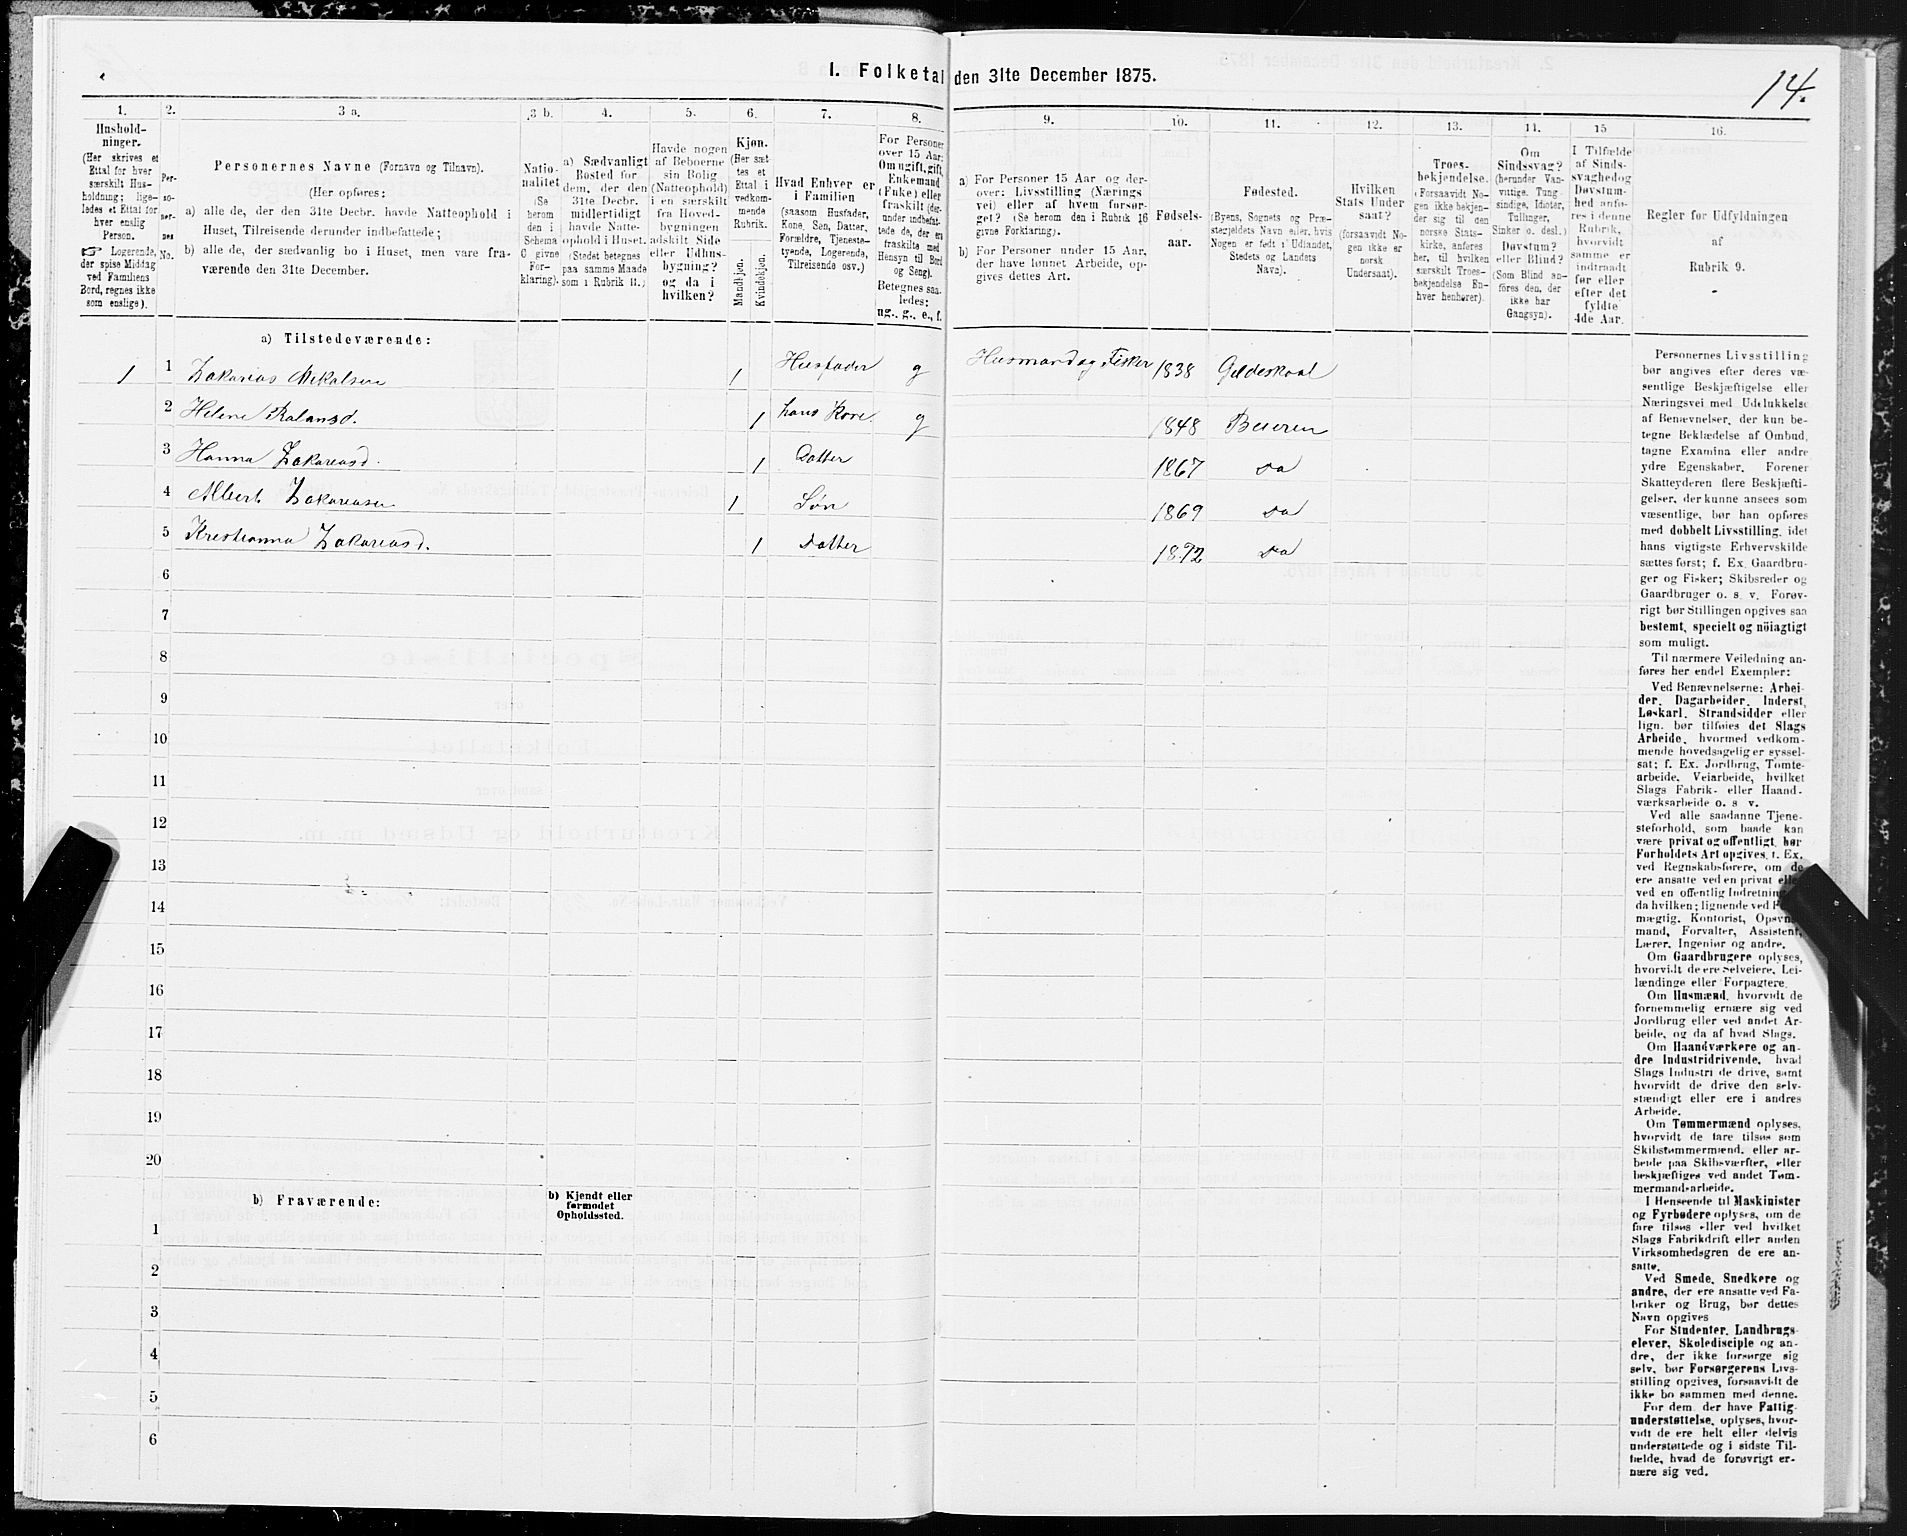 I. Folketal den 31te December 1875.
14.
1.
Husholdninger.
(Her skrives et
Ettal for hver
særskilt Husholdning; ligeledes et Ettal for
hver enslig
Person.
☞ Logerende,
der spise Middag
ved Familiens
Bord, regnes ikke
som enslige).
2.
Personernes
No.
3 a.
Personernes Navne (Fornavn og Tilnavn).
(Her opføres:
a) alle de, der den 31te Decbr. havde Natteophold i
Huset, Tilreisende derunder indbefattede;
b) alle de, der sædvanlig bo i Huset, men vare fraværende den 31te December.
3 b.
Nationalitet
(Se
herom
den i
Schema
C givne
Forklaring).
4.
a) Sædvanligt
Bosted for
dem, der den
31te Decbr.
midlertidigt
havde Natteophold i Huset.
(Stedet betegnes
paa samme Maade
som i Rubrik 11.)
5.
Havde nogen
af Beboerne
sin Bolig
(Natteophold)
i en særskilt
fra Hovedbygningen
adskilt Side
eller Udhusbygning?
og da i
hvilken?
6.
Kjøn.
(Her sættes et
Ettal i
vedkommende
Rubrik.
Mandkjøn.
Kvindekjøn.
7.
Hvad Enhver er
i Familien
(saasom Husfader,
Kone, Søn, Datter,
Forældre, Tjenestetyende, Logerende,
Tilreisende osv.)
8.
For Personer
over 15 Aar:
Om ugift, gift,
Enkemand
(Enke) eller
fraskilt (derunder indbefattede de, der ere
fraskilte med
Hensyn til Bord
og Seng).
Betegnes saaledes:
ug., g., e., f.
9.
a) For Personer 15 Aar og derover: Livsstilling (Næringsvei) eller af hvem forsørget? (Se herom den i Rubrik 16
givne Forklaring).
b) For Personer under 15 Aar,
der have lønnet Arbeide, opgives dettes Art.
10.
Fødselsaar.
11.
Fødested.
(Byens, Sognets og Præstegjeldets Navn eller, hvis
Nogen er født i Udlandet,
Stedets og Landets
Navn).
12.
Hvilken
Stats Undersaat?
(forsaavidt Nogen ikke er
norsk
Undersaat).
13.
Troesbekjendelse.
(Forsaavidt Nogen ikke bekjender sig til den
norske Statskirke, anføres
her, til hvilken
særskilt Troesbekjendelse Enhver henhører).
14.
Om
Sindssvag?
(herunder Vanvittige, Tungsindige, Idioter,
Tullinger,
Sinker o. desl.)
Døvstum?
eller Blind?
(Som Blind anføres den, der
ikke har
Gangsyn).
15
I Tilfælde
af Sindssvaghed og
Døvstumhed anføres i denne
Rubrik,
hvorvidt
samme er
indtraadt
før eller
efter det
fyldte
4de Aar.
16.
Regler for Udfyldningen
af
Rubrik 9.
a) Tilstedeværende:
1 1 Zakarias Mikalsen 1 Husfader g Husmand og Fisker 1838 Gildeskaal
2 Helene 1 hans Kone g 1848 Beieren
3 Hanna Zakariasd. 1 Datter 1867 do
4 Albert Zakariasen 1 Søn 1869 do
5 Kristianna Zakariasd. 1 Datter 1872 do
6
7
8
9
10
11
12
13
14
15
16
17
18
19
20
b) Fraværende:
b) Kjendt eller
formodet
Opholdssted.
1
2
3
4
5
6
Personernes Livsstilling
bør angives efter deres væsentlige Beskjæftigelse eller
Næringsvei med Udelukkelse
af Benævnelser, der kun betegne Beklædelse af Ombud,
tagne Examina eller andre
ydre Egenskaber. Forener
Skatteyderen flere Beskjæftigelser, der kunne ansees som
væsentlige, bør han opføres
med dobbelt Livsstilling, idet
hans vigtigste Erhvervskilde
sættes først; f. Ex. Gaardbruger og Fisker; Skibsreder og
Gaardbruger o. s. v. Forøvrigt bør Stillingen opgives saa
bestemt, specielt og nöiagtigt
som muligt.
Til nærmere Veiledning anføres her endel Exempler:
Ved Benævnelserne: Arbeider, Dagarbeider, Inderst,
Løskarl, Strandsidder eller
lign. bør tilføies det Slags
Arbeide, hvormed vedkommende hovedsagelig er sysselsat; f. Ex. Jordbrug, Tomtearbeide, Veiarbeide, hvilket
Slags Fabrik- eller Haandværksarbeide o. s. v.
Ved alle saadanne Tjenesteforhold, som baade kan
være privat og offentligt, bør
Forholdets Art opgives, f. Ex.
ved Regnskabsførere, om de
ere ansatte ved en privat eller
ved en offentlig Indretning
da hvilken; lignende ved
mægtig, Kontorist, Opsynsmand, Forvalter, Assistent,
Lærer, Ingeniør og andre.
Om Gaardbrugere oplyses,
hvorvidt de ere Selveiere, Leilændinge eller Forpagtere.
Om Husmænd, hvorvidt de
fornemmelig ernære sig ved
Jordbrug eller ved andet Arbeide, og da af hvad Slags.
Om Haandværkere og andre Industridrivende, hvad
Slags Industri de drive, samt
hvorvidt de drive den selvstændigt eller ere i andres
Arbeide.
Om Tømmermænd oplyses,
hvorvidt de fare tilsøs som
Skibstømmermænd, eller arbeide paa Skibsværfter, eller
beskjæftiges ved andet Tømmermandsarbeide.
I Henseende til Maskinister
og Fyrbødere oplyses, om de
fare tilsøs eller ved hvilket
Slags Fabrikdrift eller anden
Virksomhedsgren de ere ansatte.
Ved Smede, Snedkere og
andre, der ere ansatte ved Fabriker og Brug, bør dettes
Navn opgives
For Studenter, Landbrugselever, Skoledisciple og andre, der ikke forsørge sig
selv, bør Forsørgerens Livsstilling opgives, forsaavidt de
ikke bo sammen med denne.
For dem, der have Fattigunderstøttelse, oplyses, hvorvidt de ere helt eller delvis
understøttede og i sidste Tilfælde, hvad de forøvrigt ernære sig ved.